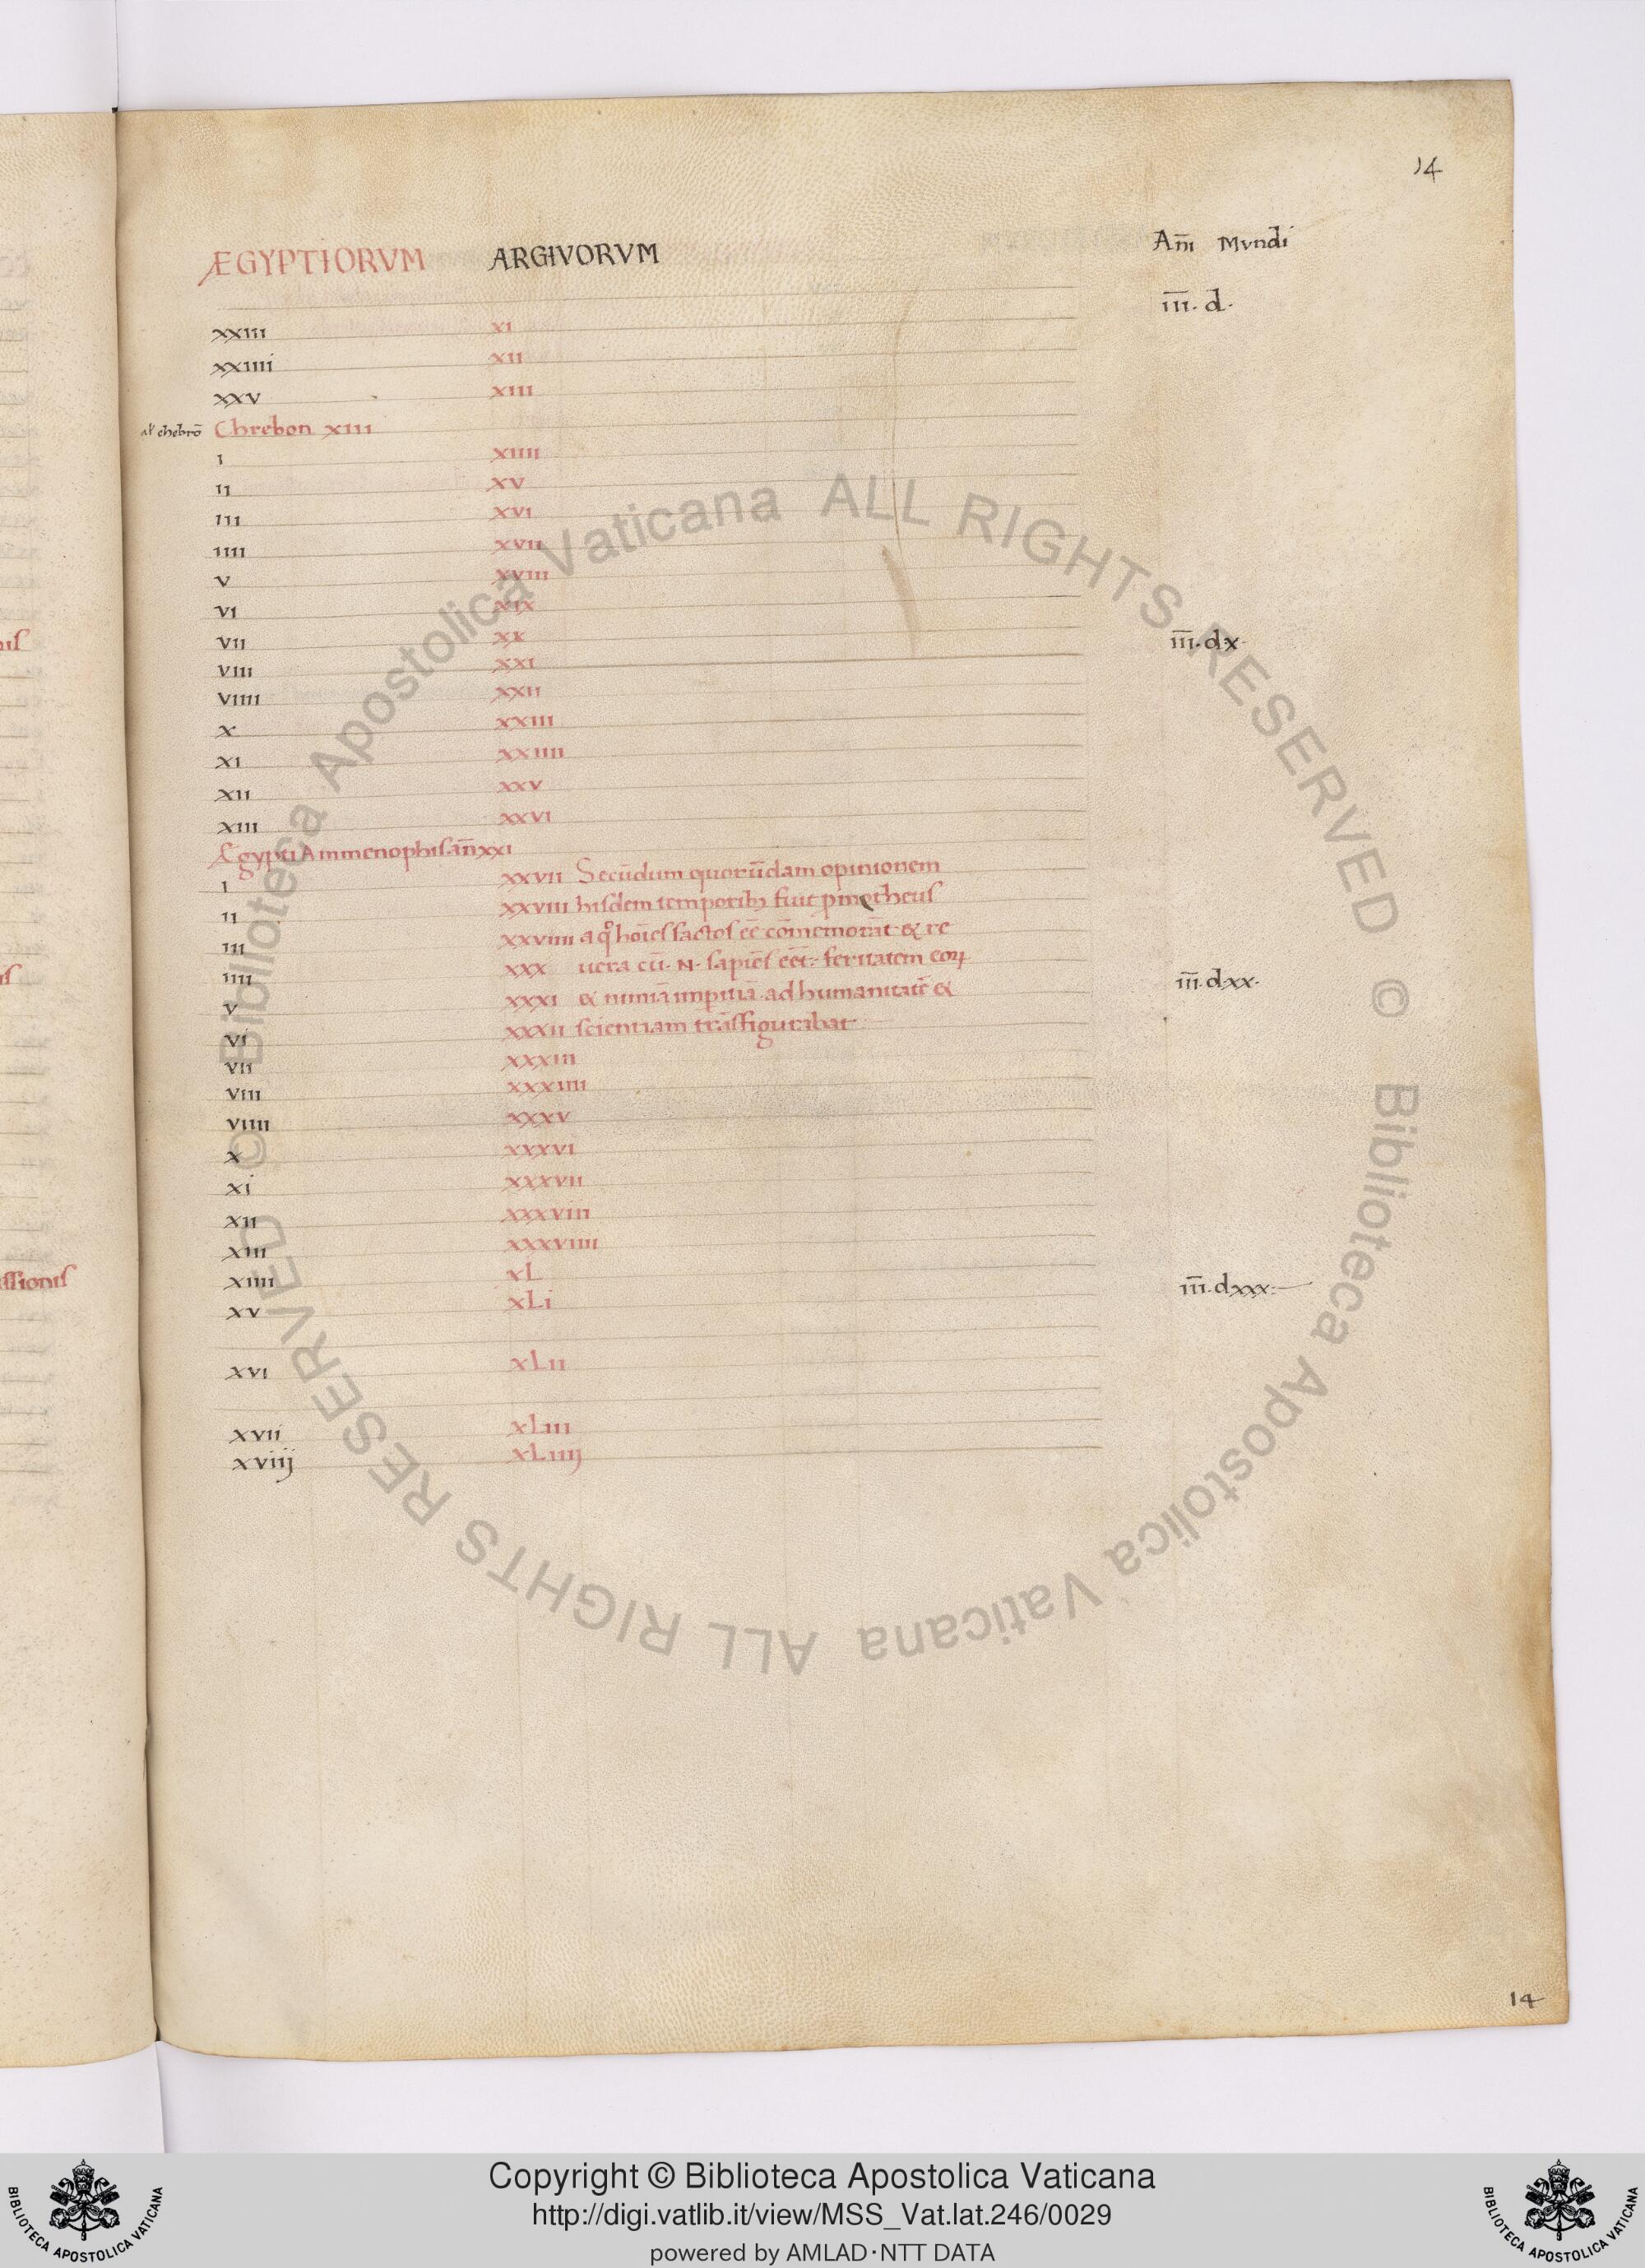 14
ÆGYPTIORVM ARGIVORVM Am̄ Mvndi
i̅i̅i̅. d.
xxiii xi
xxiiii xii
xxv xiii
al' chebrō Chrebon xiii
i xiiii
ii xv
iii xvi
iiii xvii
v xviii
vi xix
vii xx i̅i̅i̅. dx
viii xxi
viiii xxii
x xxiii
xi xxiiii
xii xxv
xiii xxvi
Ægypti Ammenophis an̄ xxi
i xxvii Secūdum quorūdam opinionem
ii xxviii hisdem temporibꝫ fuit pmotheus
iii xxviiii a qͦ hoīes factos eē cōmemorāt & re
iiii xxx uera cū. N. sapiēs eēt: feritatem eoꝝ i̅i̅i̅. dxx.
v xxxi & nimiā impitiā. ad humanitatē &
vi xxxii scientiam trāsfigurabat
vii xxxiii
viii xxxiiii
viiii xxxv
x xxxvi
xi xxxvii
xii xxxviii
xiii xxxviiii
xiiii xL i̅i̅i̅. dxxx:
xv xLi
xvi xLii
xvii xLiii
xviij xLiiij
14
© Biblioteca Apostolica Vaticana ALL RIGHTS RESERVED
© Biblioteca Apostolica Vaticana ALL RIGHTS RESERVED
Copyright © Biblioteca Apostolica Vaticana
http://digi.vatlib.it/view/MSS_Vat.lat.246/0029
powered by AMLAD·NTT DATA
BIBLIOTECA APOSTOLICA VATICANA
BIBLIOTECA APOSTOLICA VATICANA